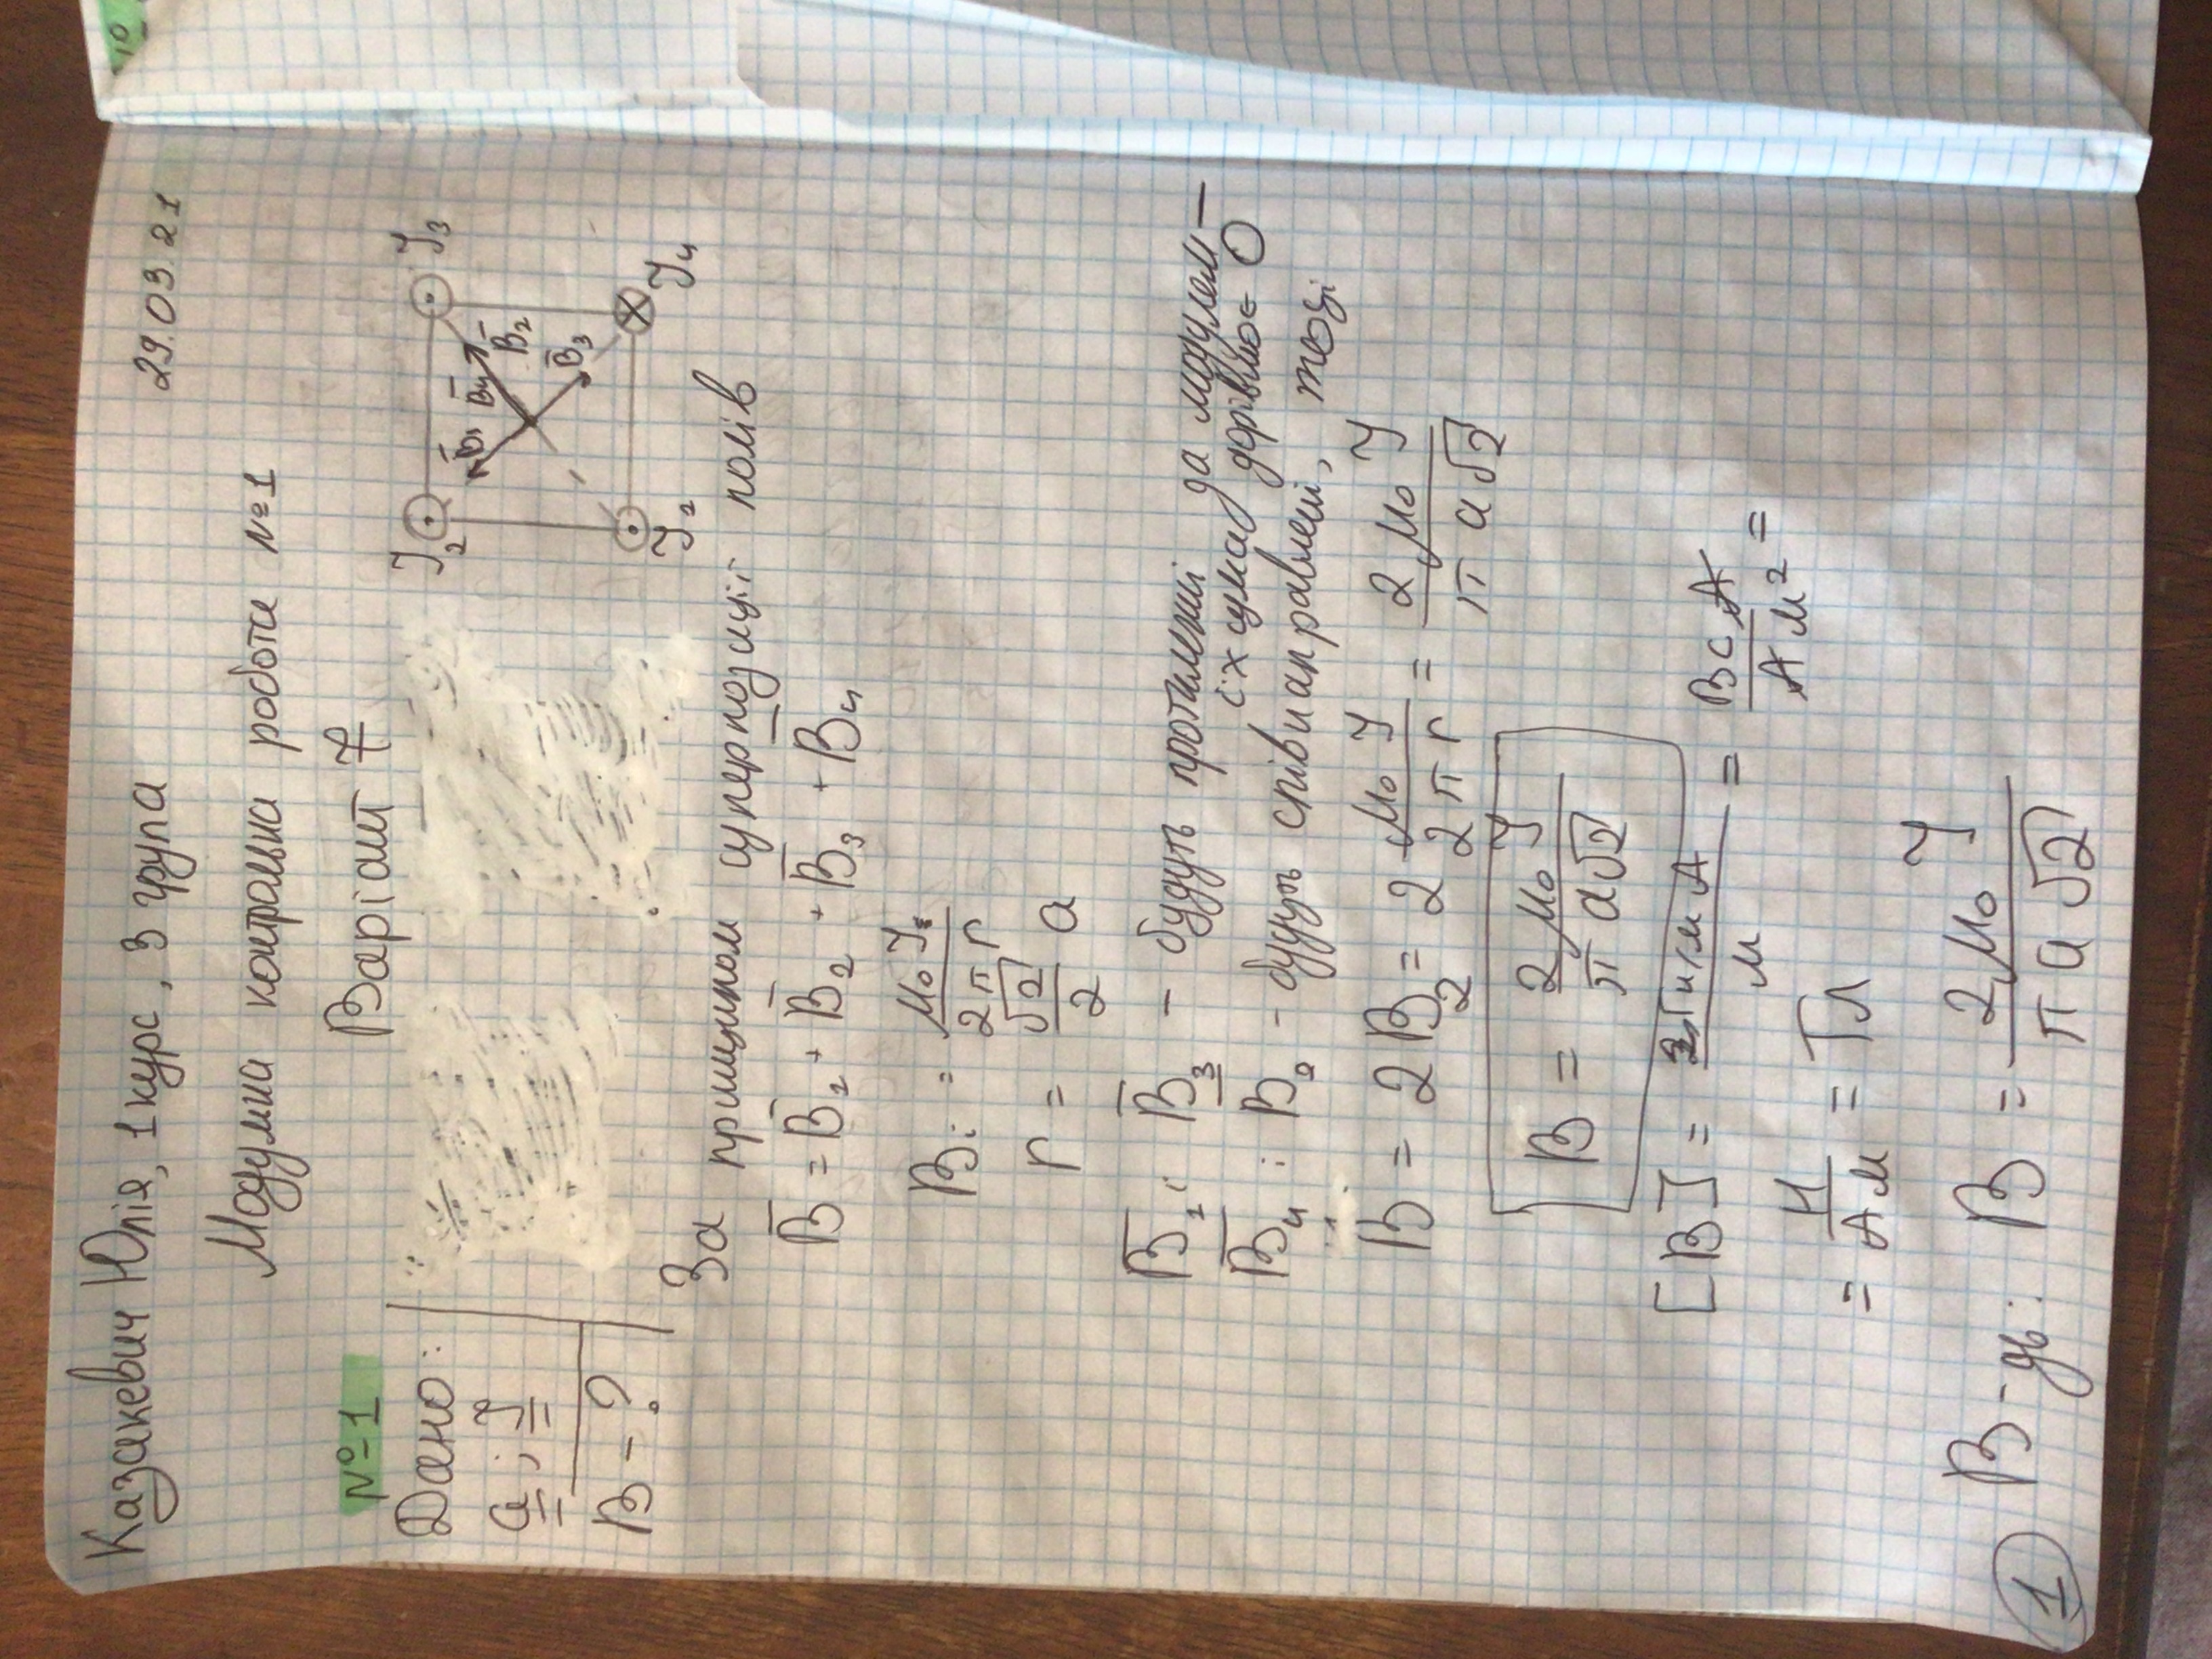 Казакевич Юлія, 1 курс, 3 група
29.03.21
Модульна контрольна робота №1
Варіант 7
№1
Дано:
a ; I
B - ?
I₂ I₃
B̄₁ B̄₄ B̄₂
B̄₃
I₁ I₄
За принципом суперпозиції полів
B̄ = B̄₁ + B̄₂ + B̄₃ + B̄₄
Bᵢ = μ₀ I / 2πr
r = √2/2 a
B̄₁ і B̄₃ - будуть протилежні за модулем —
їх сума дорівнює 0
B̄₄ і B̄₂ - будуть співнаправлені, тоді
B = 2B₂ = 2 μ₀ I / 2πr = 2 μ₀ I / π a√2
B = 2 μ₀ I / π a√2
[B] = Гн/м А / м = В с А / А м² =
= Н / А м = Тл
В-дь: B = 2 μ₀ I / π a √2
1
№